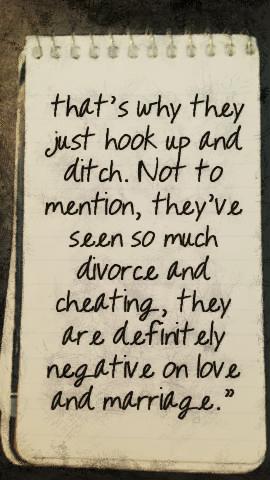 that's why they
just hook up and
ditch. Not to
mention, they've
seen so much
divorce and
cheating, they
are definitely
negative on love
and marriage."